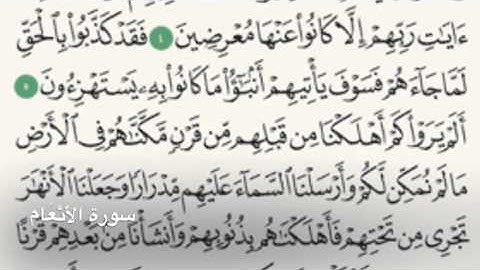 ءَايَٰتِ رَبِّهِمْ إِلَّا كَانُوا۟ عَنْهَا مُعْرِضِينَ ٤ فَقَدْ كَذَّبُوا۟ بِٱلْحَقِّ
لَمَّا جَآءَهُمْ فَسَوْفَ يَأْتِيهِمْ أَنۢبَٰٓؤُا۟ مَا كَانُوا۟ بِهِۦ يَسْتَهْزِءُونَ ٥
أَلَمْ يَرَوْا۟ كَمْ أَهْلَكْنَا مِن قَبْلِهِم مِّن قَرْنٍ مَّكَّنَّٰهُمْ فِى ٱلْأَرْضِ
مَا لَمْ نُمَكِّن لَّكُمْ وَأَرْسَلْنَا ٱلسَّمَآءَ عَلَيْهِم مِّدْرَارًا وَجَعَلْنَا ٱلْأَنْهَٰرَ
سورة الأنعام
تَجْرِى مِن تَحْتِهِمْ فَأَهْلَكْنَٰهُم بِذُنُوبِهِمْ وَأَنشَأْنَا مِنۢ بَعْدِهِمْ قَرْنًا